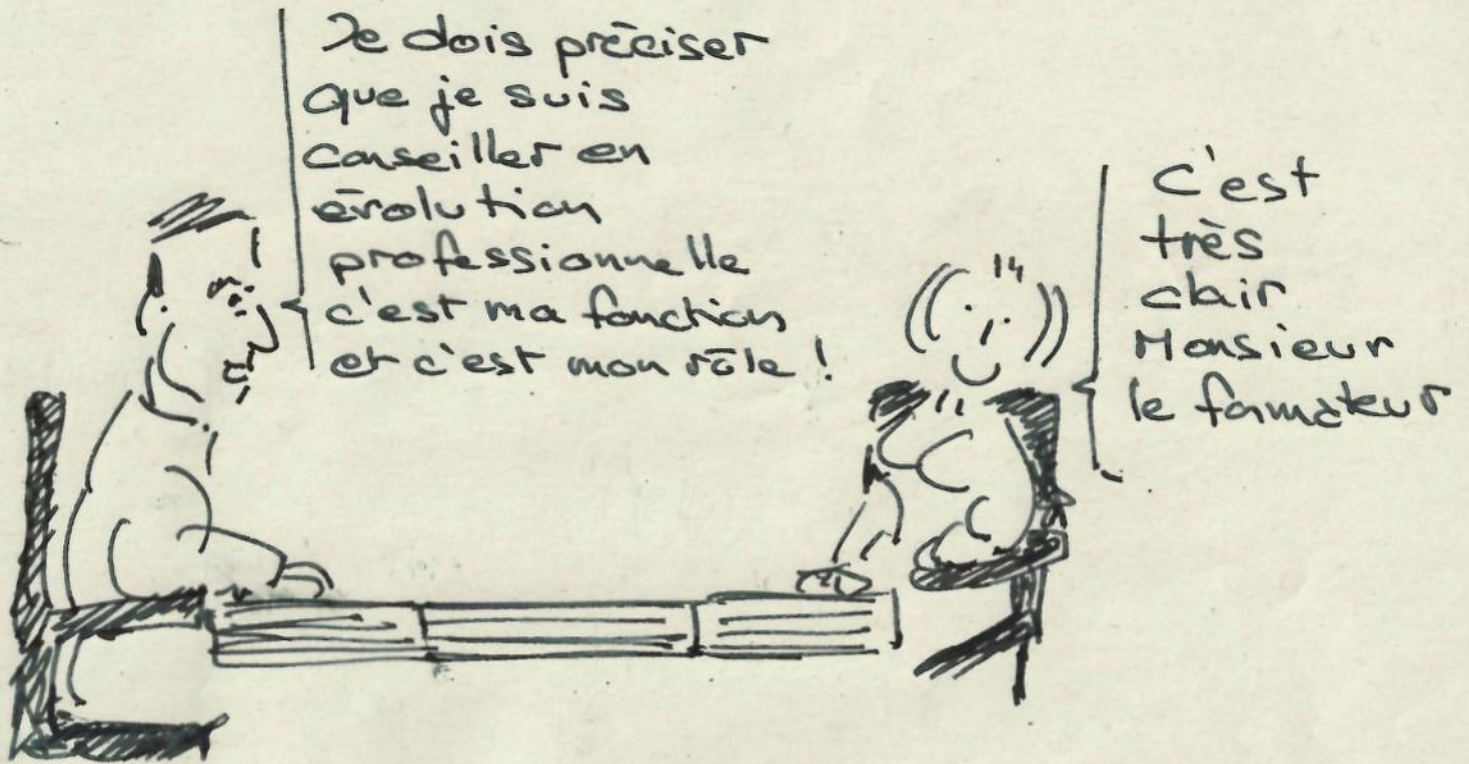 Je dois préciser
que je suis
conseiller en
évolution
professionnelle
c'est ma fonction
et c'est mon rôle !
C'est
très
clair
Monsieur
le formateur